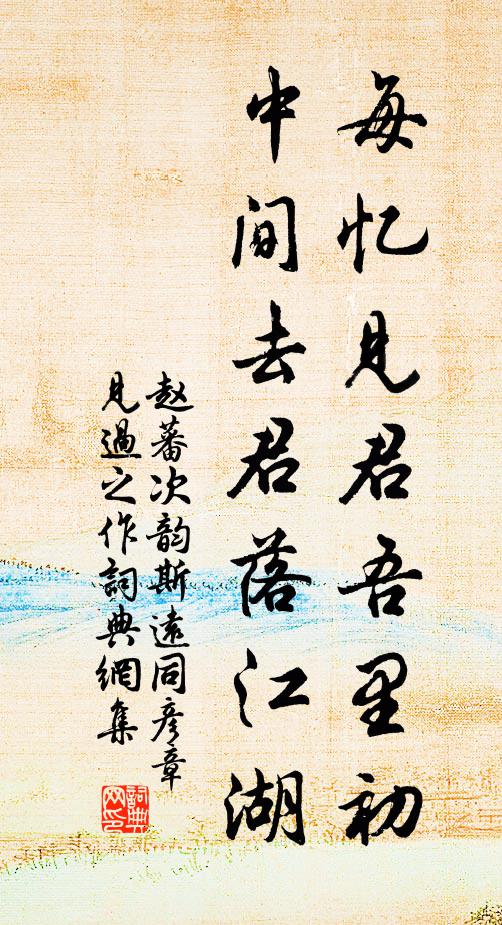 每忆见君吾里初
中间去君落江湖
赵蕃次韵斯遠同彦章
见過之作詞典網集
詞典
网印